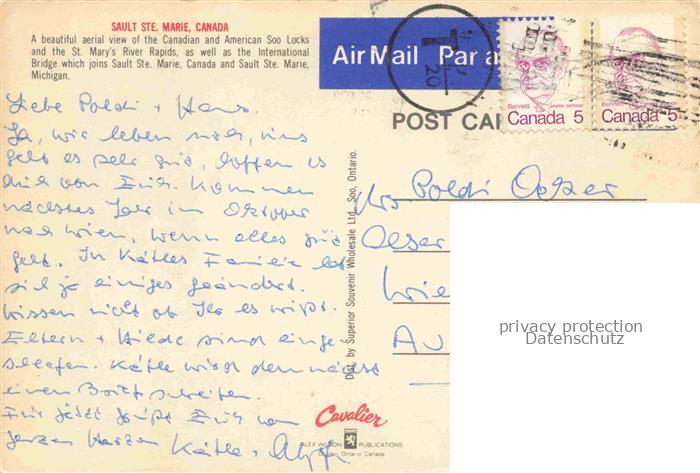 SAULT STE. MARIE, CANADA
A beautiful aerial view of the Canadian and American Soo Locks
and the St. Mary's River Rapids, as well as the International
Bridge which joins Sault Ste. Marie, Canada and Sault Ste. Marie,
Michigan.
Air Mail Par a
20
Bennett
Canada 5
Bennett
Canada 5
POST CAR
Liebe Poldi + Hans.
Ja, wir leben noch, uns
geht es sehr gut, hoffen es
auch von Euch. Kommen
nächstes Jahr im Oktober
nach Wien, wenn alles gut
geht. In Käthes Familie hat
sich ja einiges geändert.
wissen nicht ob Ihr es wißt.
Eltern + Hilde sind einge-
schlafen. Käthe wird demnächst
einen Brief schreiben.
Für jetzt grüßt Euch von
ganzen Herzen Käthe +
Mrs Poldi
Wie
Au
Dist. by Superior Souvenir Wholesale Ltd., Soo, Ontario.
Cavalier
ALEX WILSON PUBLICATIONS
Dryden, Ontario Canada
privacy protection
Datenschutz